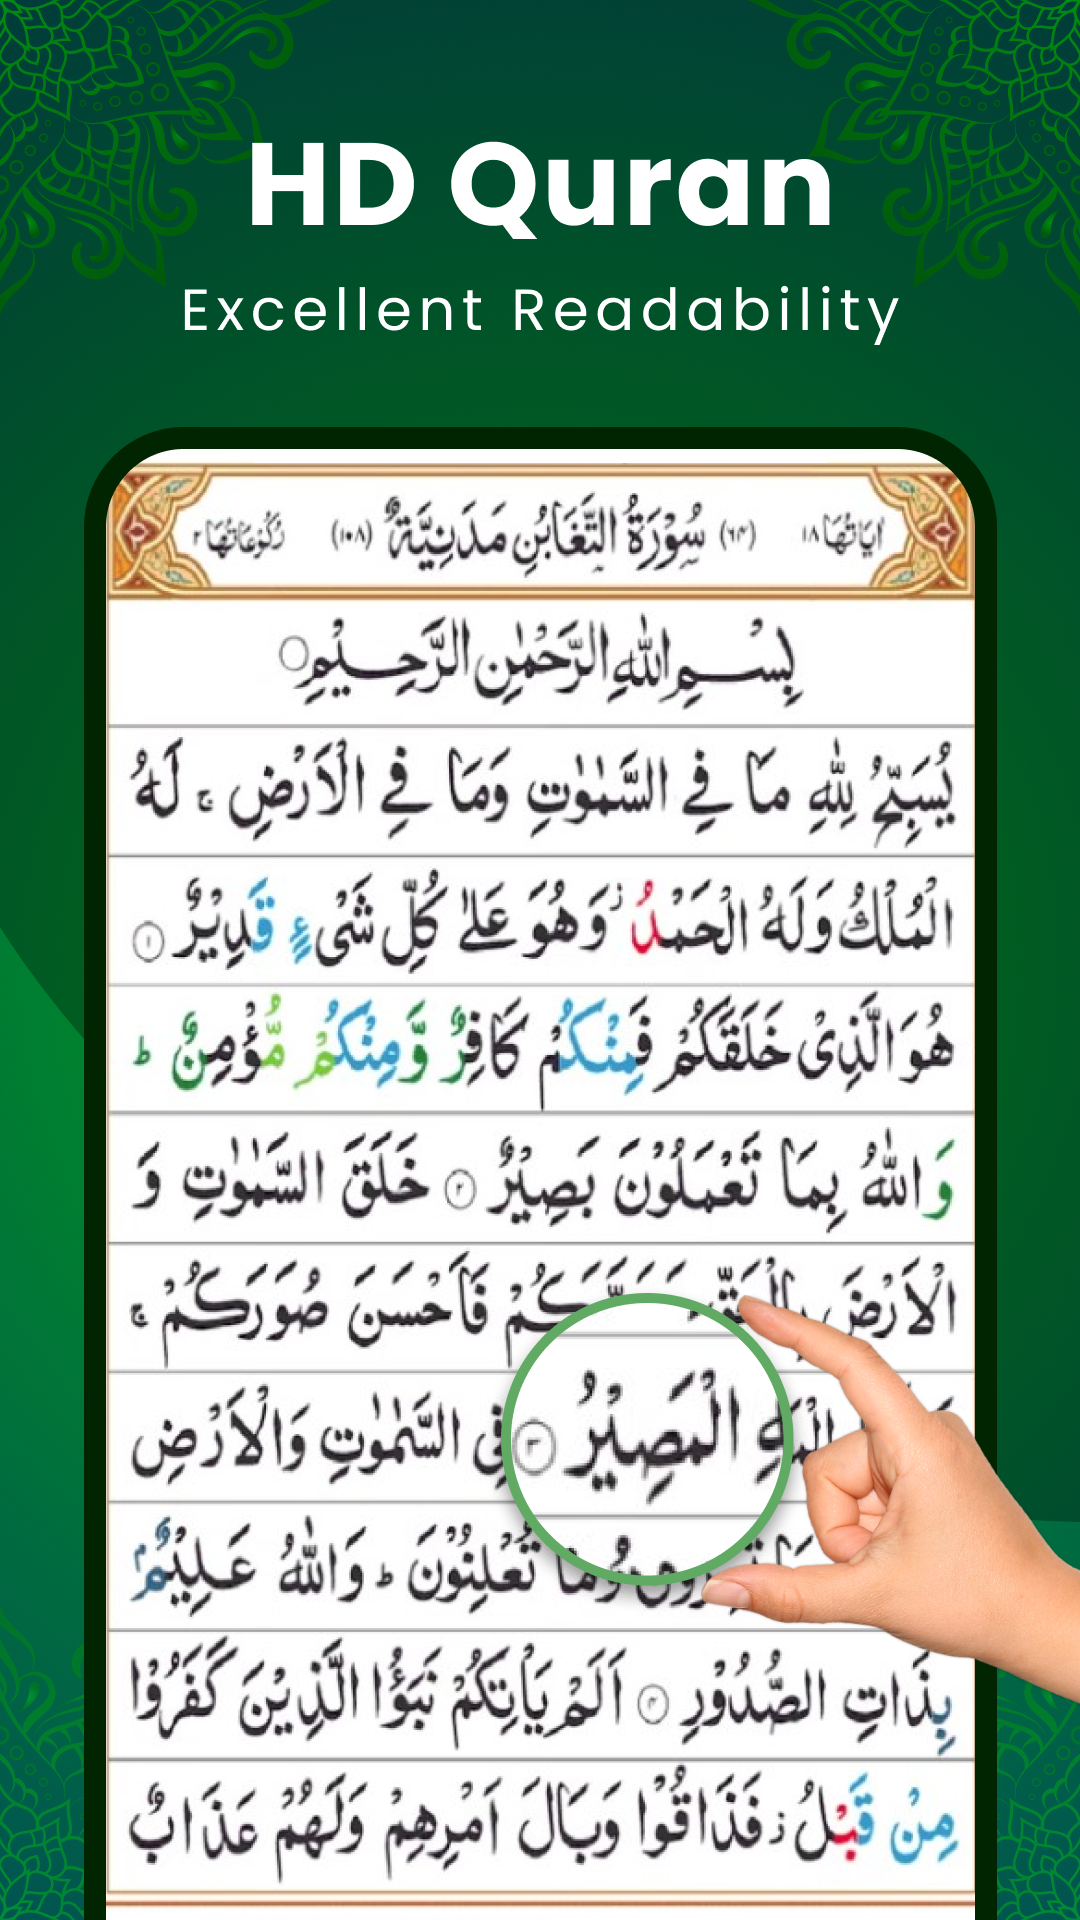 HD Quran
Excellent Readability
اٰیَاتُهَا ١٨ (٦٤) سُوْرَةُ التَّغَابُنِ مَدَنِيَّةٌ (١٠٨) رُكُوْعَاتُهَا ٢
بِسْمِ اللّٰهِ الرَّحْمٰنِ الرَّحِيْمِ
يُسَبِّحُ لِلّٰهِ مَا فِي السَّمٰوٰتِ وَمَا فِي الْاَرْضِ ۚ لَهُ
الْمُلْكُ وَلَهُ الْحَمْدُ ۫ وَهُوَ عَلٰى كُلِّ شَیْءٍ قَدِيْرٌ ١
هُوَ الَّذِیْ خَلَقَكُمْ فَمِنْكُمْ كَافِرٌ وَّمِنْكُمْ مُّؤْمِنٌ ؕ
وَاللّٰهُ بِمَا تَعْمَلُوْنَ بَصِيْرٌ ٢ خَلَقَ السَّمٰوٰتِ وَ
الْاَرْضَ بِالْحَقِّ كُمْ فَاَحْسَنَ صُوَرَكُمْ ۚ
الْمَصِيْرُ ٣ فِی السَّمٰوٰتِ وَالْاَرْضِ
تُعْلِنُوْنَ ؕ وَاللّٰهُ عَلِيْمٌۢ
بِذَاتِ الصُّدُوْرِ ٤ اَلَمْ يَاْتِكُمْ نَبَؤُا الَّذِيْنَ كَفَرُوْا
مِنْ قَبْلُ ز فَذَاقُوْا وَبَالَ اَمْرِهِمْ وَلَهُمْ عَذَابٌ